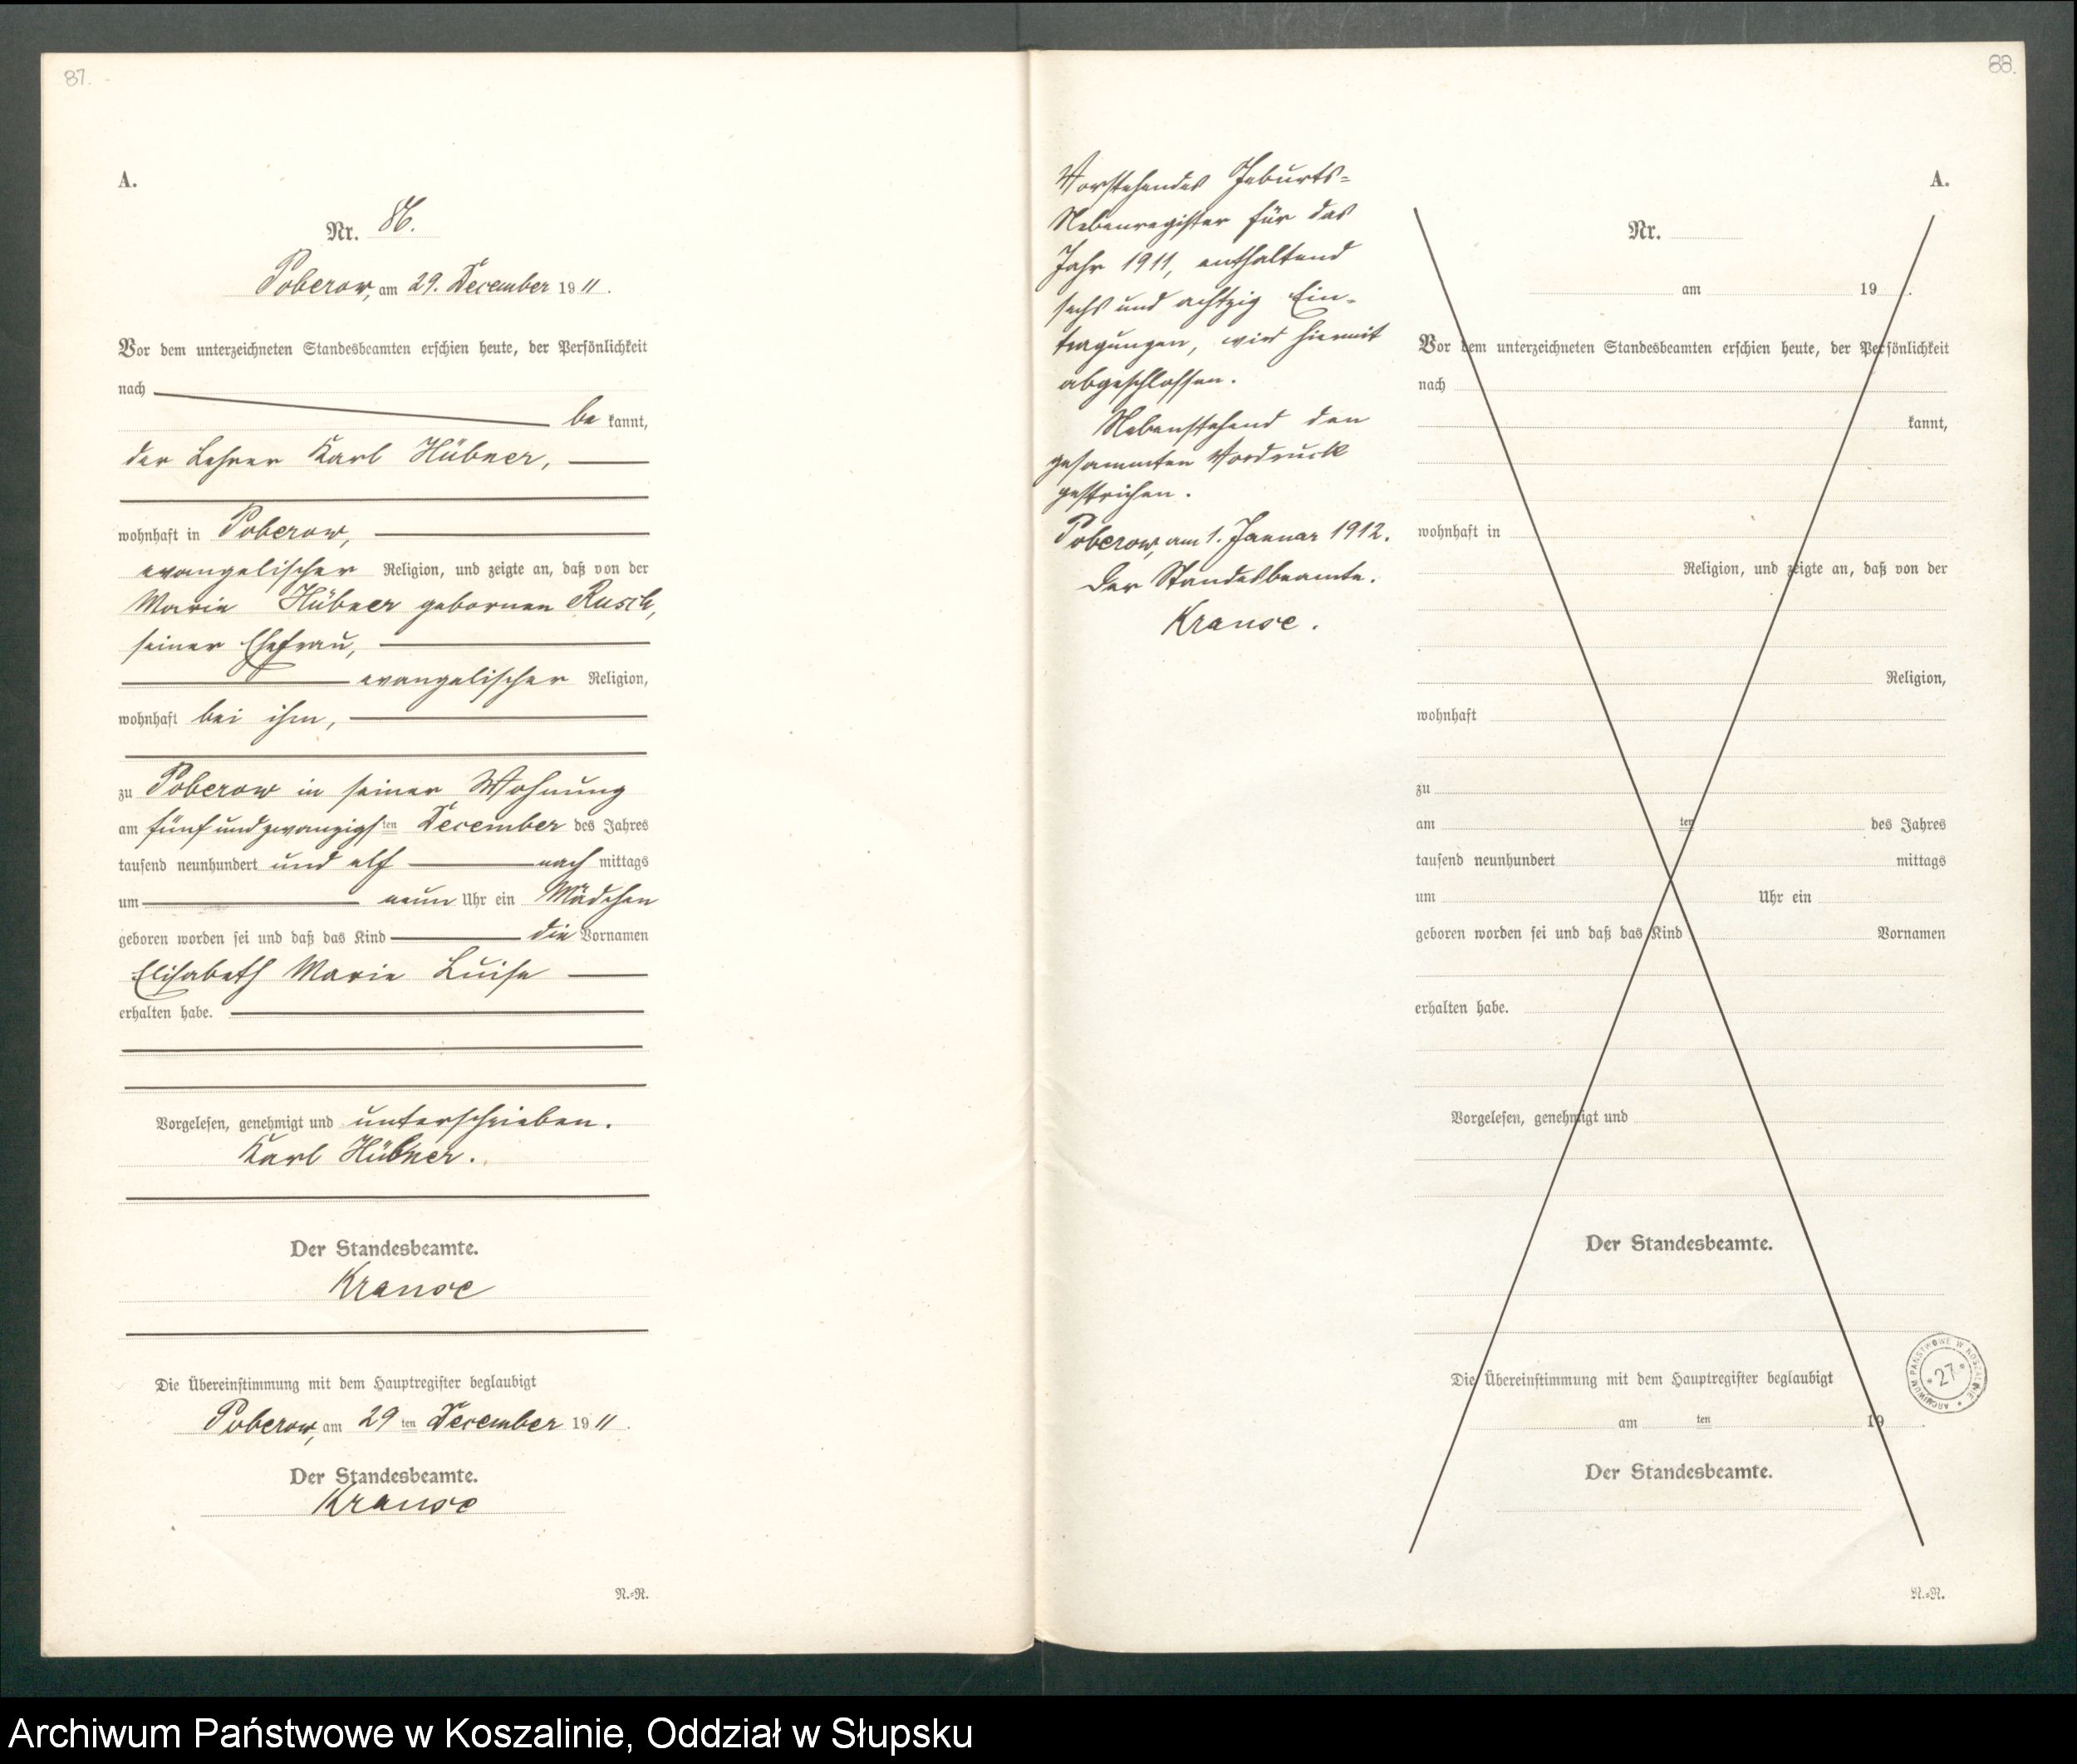 87.
A.
Nr. 86.
Poberow, am 29. December 1911.
Vor dem unterzeichneten Standesbeamten erschien heute, der Persönlichkeit
nach
be kannt,
der Lehrer Karl Hübner,
wohnhaft in Poberow,
evangelischer Religion, und zeigte an, daß von der
Marie Hübner gebornen Rusch,
seiner Ehefrau,
evangelischer Religion,
wohnhaft bei ihm,
zu Poberow in seiner Wohnung
am fünf und zwanzigsten December des Jahres
tausend neunhundert und elf nach mittags
um neun Uhr ein Mädchen
geboren worden sei und daß das Kind die Vornamen
Elisabeth Marie Luise
erhalten habe.
Vorgelesen, genehmigt und unterschrieben.
Karl Hübner.
Der Standesbeamte.
Krause
Die Übereinstimmung mit dem Hauptregister beglaubigt
Poberow, am 29 ten December 1911.
Der Standesbeamte.
Krause
N.=N.
88.
Vorstehendes Geburts=
Nebenregister für das
Jahr 1911, enthaltend
sechs und achtzig Ein-
tragungen, wird hiermit
abgeschlossen.
Nebenstehend den
gesammten Vordruck
gestrichen.
Poberow, am 1. Januar 1912.
Der Standesbeamte.
Krause.
A.
Nr.
am 19 .
Vor dem unterzeichneten Standesbeamten erschien heute, der Persönlichkeit
nach
kannt,
wohnhaft in
Religion, und zeigte an, daß von der
Religion,
wohnhaft
zu
am ten des Jahres
tausend neunhundert mittags
um Uhr ein
geboren worden sei und daß das Kind Vornamen
erhalten habe.
Vorgelesen, genehmigt und
Der Standesbeamte.
Die Übereinstimmung mit dem Hauptregister beglaubigt
am ten 19 .
Der Standesbeamte.
N.=N.
ARCHIWUM PAŃSTWOWE W KOSZALINIE
* 27 *
Archiwum Państwowe w Koszalinie, Oddział w Słupsku